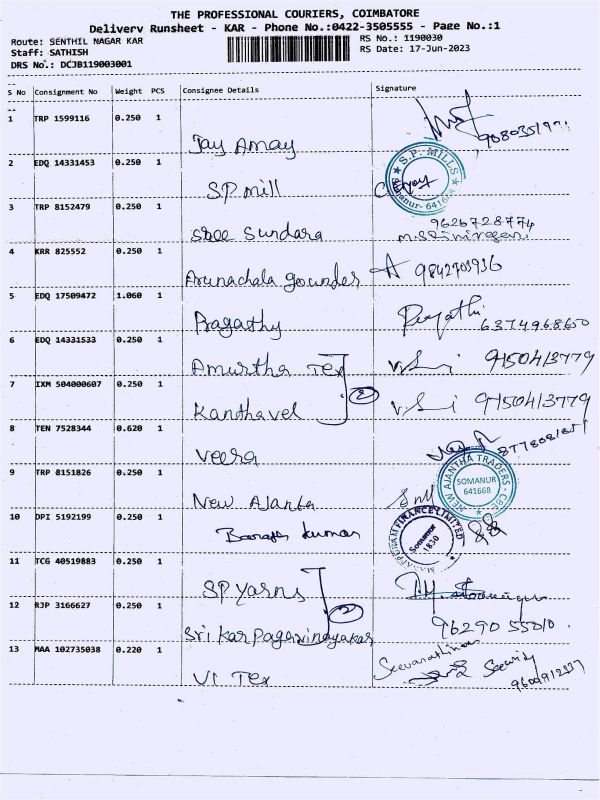 THE PROFESSIONAL COURIERS, COIMBATORE
Delivery Runsheet - KAR - Phone No.:0422-3505555 - Page No.:1
Route: SENTHIL NAGAR KAR
RS No.: 1190030
Staff: SATHISH
RS Date: 17-Jun-2023
DRS No.: DCJB119003001
S No Consignment No Weight PCS Consignee Details Signature
1 TRP 1599116 0.250 1
Jay Amay
2 EDQ 14331453 0.250 1
S.P. MILLS
Somanur- 641668
S.P mill
3 TRP 8152479 0.250 1
9626728774
sree Sundara
M.SSrinivasan
4 KRR 825552 0.250 1
Arunachala gounder 9842703936
5 EDQ 17509472 1.060 1
Pragathy
6374968650
6 EDQ 14331533 0.250 1
Amurtha Tex 9150413779
7 IXM 504000607 0.250 1
Kanthavel 2 9150413779
8 TEN 7528344 0.620 1
Veera
9 TRP 8151826 0.250 1
NEW AJANTHA TRADERS - CBE
SOMANUR
641668
New Ajanta
10 DPI 5192199 0.250 1
FINANCE LIMITED
Somanur
1830
kumar
11 TCG 40519883 0.250 1
SP Yarns
12 RJP 3166627 0.250 1
2
Sri Karpagavinayakar 96290 55010.
13 MAA 102735038 0.220 1
VI Tex